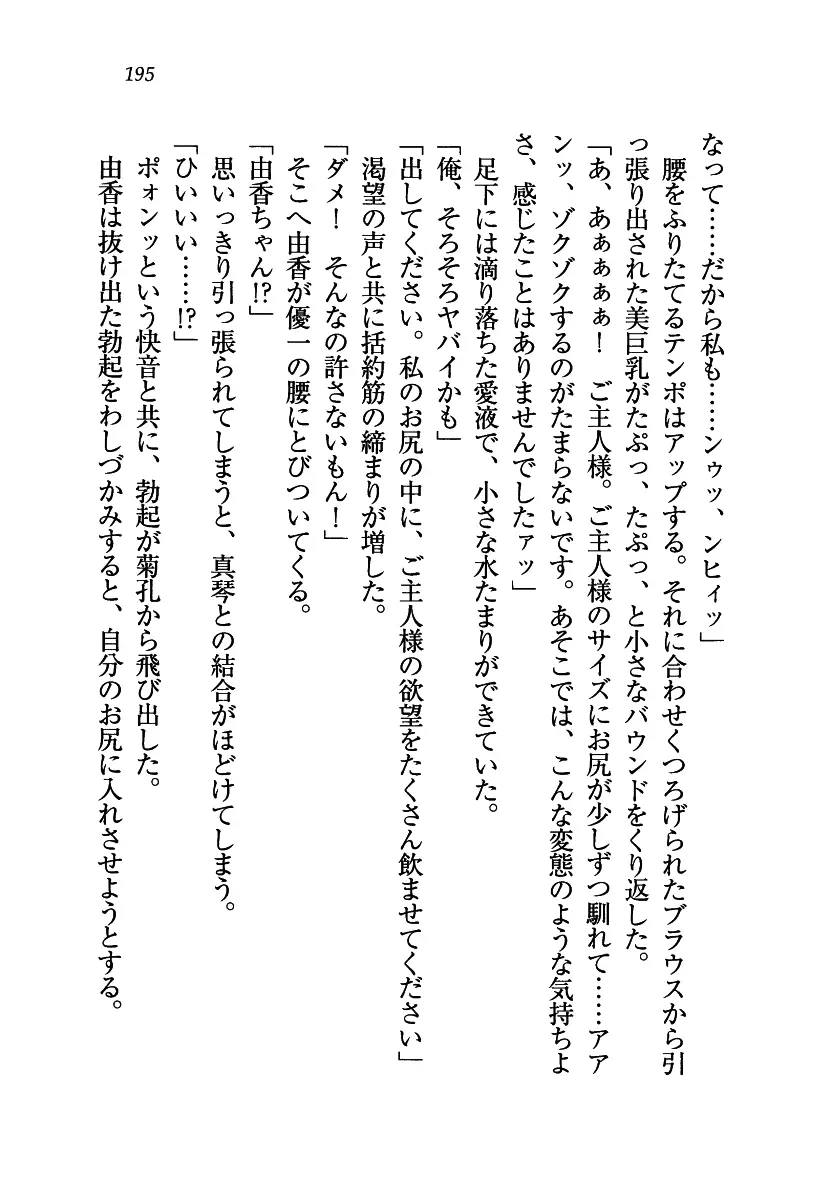 195
なって……だから私も……ンゥッ、ンヒィッ」
　腰をふりたてるテンポはアップする。それに合わせくつろげられたブラウスから引
っ張り出された美巨乳がたぷっ、たぷっ、と小さなバウンドをくり返した。
「あ、あぁぁぁぁ！　ご主人様。ご主人様のサイズにお尻が少しずつ馴れて……アア
ンッ、ゾクゾクするのがたまらないです。あそこでは、こんな変態のような気持ちよ
さ、感じたことはありませんでしたァッ」
　足下には滴り落ちた愛液で、小さな水たまりができていた。
「俺、そろそろヤバイかも」
「出してください。私のお尻の中に、ご主人様の欲望をたくさん飲ませてください」
　渇望の声と共に括約筋の締まりが増した。
「ダメ！　そんなの許さないもん！」
　そこへ由香が優一の腰にとびついてくる。
「由香ちゃん!?」
　思いっきり引っ張られてしまうと、真琴との結合がほどけてしまう。
「ひいいい……!?」
　ポォンッという快音と共に、勃起が菊孔から飛び出した。
　由香は抜け出た勃起をわしづかみすると、自分のお尻に入れさせようとする。